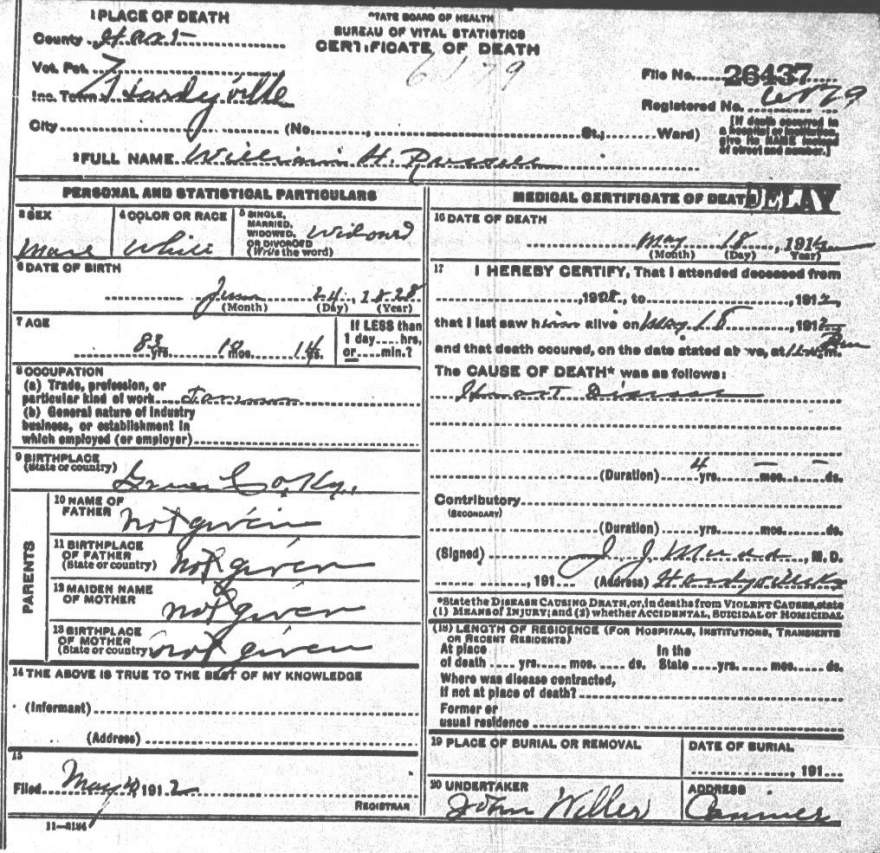 1 PLACE OF DEATH
County Hart
Vot. Pct. 7
Inc. Town Hardyville
City (No. , St.; Ward)
TATE BOARD OF HEALTH
BUREAU OF VITAL STATISTICS
CERTIFICATE OF DEATH
6179
File No. 26437
Registered No.
[If death occurred in
a hospital or institution,
give its NAME instead
of street and number.]
2 FULL NAME William H. Russell
PERSONAL AND STATISTICAL PARTICULARS
3 SEX
Male
4 COLOR OR RACE
White
5 SINGLE,
MARRIED,
WIDOWED,
OR DIVORCED
(Write the word)
Widowed
6 DATE OF BIRTH
June 24, 1828
(Month) (Day) (Year)
7 AGE
83 yrs. 10 mos. 14 ds.
If LESS than
1 day .... hrs.
or .... min.?
8 OCCUPATION
(a) Trade, profession, or
particular kind of work Farmer
(b) General nature of industry
business, or establishment in
which employed (or employer)
9 BIRTHPLACE
(State or country)
Green Co, Ky.
PARENTS
10 NAME OF
FATHER
not given
11 BIRTHPLACE
OF FATHER
(State or country)
not given
12 MAIDEN NAME
OF MOTHER
not given
13 BIRTHPLACE
OF MOTHER
(State or country)
not given
14 THE ABOVE IS TRUE TO THE BEST OF MY KNOWLEDGE
(Informant)
(Address)
15
Filed May , 1912
REGISTRAR
11-8184
MEDICAL CERTIFICATE OF DEAT DELAY
16 DATE OF DEATH
May 18, 191
(Month) (Day) (Year)
17 I HEREBY CERTIFY, That I attended deceased from
, 1908, to , 1912,
that I last saw him alive on May 18, 1912
and that death occured, on the date stated above, at m.
The CAUSE OF DEATH* was as follows:
Heart Disease
(Duration) 4 yrs. – mos. – ds.
Contributory
(SECONDARY)
(Duration) yrs. mos. ds.
(Signed) J J Mudd, M.D.
, 191 (Address) Hardyville Ky
*State the DISEASE CAUSING DEATH, or, in deaths from VIOLENT CAUSES, state
(1) MEANS OF INJURY; and (2) whether ACCIDENTAL, SUICIDAL OR HOMICIDAL
(18) LENGTH OF RESIDENCE (FOR HOSPITALS, INSTITUTIONS, TRANSIENTS
OR RECENT RESIDENTS)
At place In the
of death .... yrs. mos. ds. State .... yrs. mos. ds.
Where was disease contracted,
if not at place of death?
Former or
usual residence
19 PLACE OF BURIAL OR REMOVAL
DATE OF BURIAL
, 191
20 UNDERTAKER
John Willer
ADDRESS
Canmer